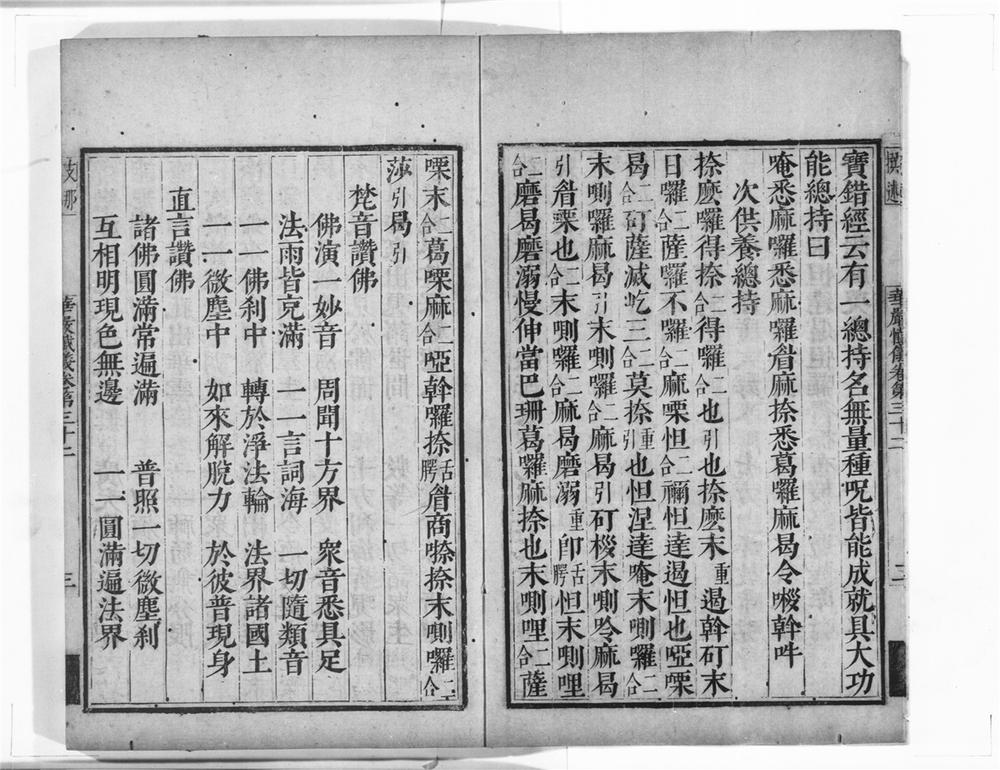 寶錯經云有一總持名無量種呪皆能成就具大功
能總持曰
唵悉麻囉悉麻囉眘麻捺悉葛囉麻曷令㗚斡吽
次供養總持
捺麽囉得捺二合得囉二合也引也捺麽末重遏斡矴末
日囉二合薩囉不囉二合麻㗚怛二合禰怛達遏怛也啞㗚
曷二合矴薩滅屹三合莫捺重引也怛涅達唵末唎囉二合
末唎囉麻曷引末唎囉二合麻曷引矴㮹末唎唥麻曷
引眘㗚也二合末唎囉二合麻曷磨溺重卽舌㗁怛末唎哩
二合磨曷磨溺慢伸當巴珊葛囉麻捺也末唎哩二合薩
㗚末二合葛㗚麻二合啞斡囉捺舌㗁眘商㗚捺末唎囉二合
莎引曷引
梵音讚佛
佛演一妙音 周聞十方界 衆音悉具足
法雨皆充滿 一一言詞海 一切隨類音
一一佛刹中 轉於淨法輪 法界諸國土
一一微塵中 如來解脫力 於彼普現身
直言讚佛
諸佛圓滿常遍滿 普照一切微塵刹
互相明現色無邊 一一圓滿遍法界
華嚴懺儀卷第三十二
二
華嚴懺儀卷第三十二
三